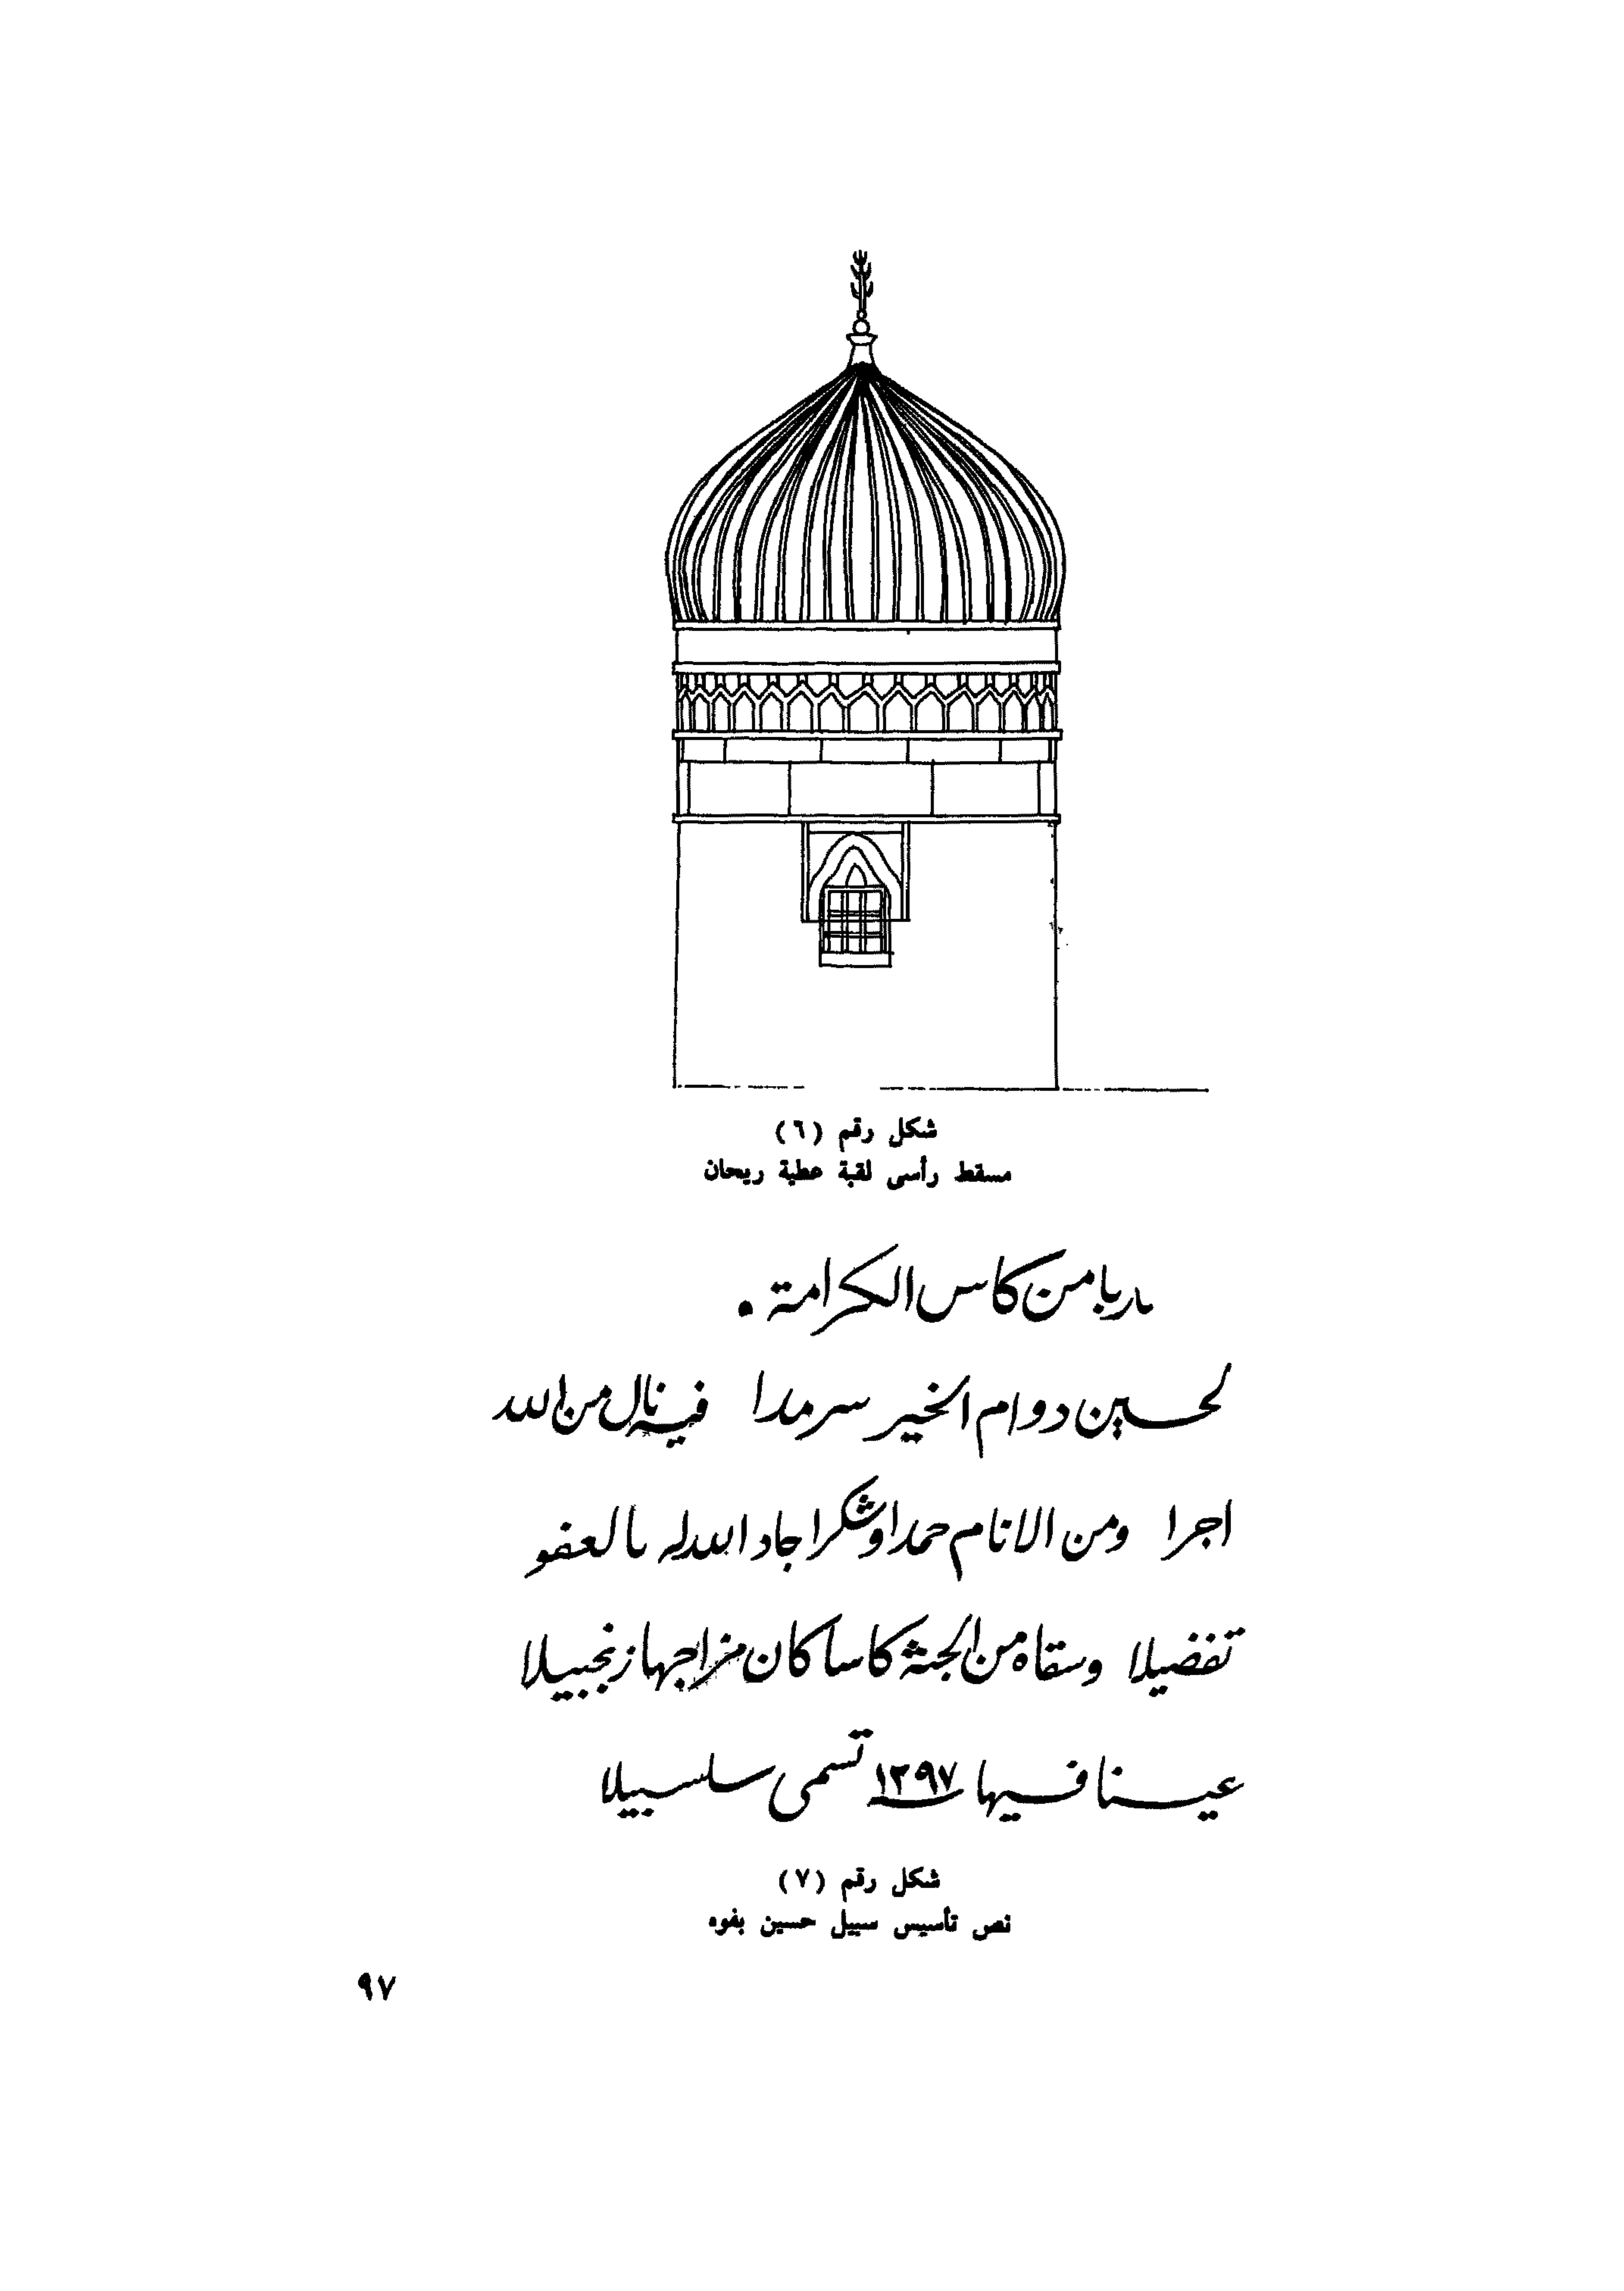 شكل رقم (٦)
مسقط رأسى لقبة عطية ريحان
من كاس الكرامة .
لحسين دوام الخير سرمدا فيه نال من الله
اجرا ومن الانام حمدا وشكرا جاد الله له بالعفو
تفضيلا وسقاه من الجنة كاسا كان مزاجها زنجبيلا
عينا فيها سنة ١٢٩٧ تسمى سلسبيلا
شكل رقم (٧)
نص تأسيس سبيل حسين بفوه
٩٧